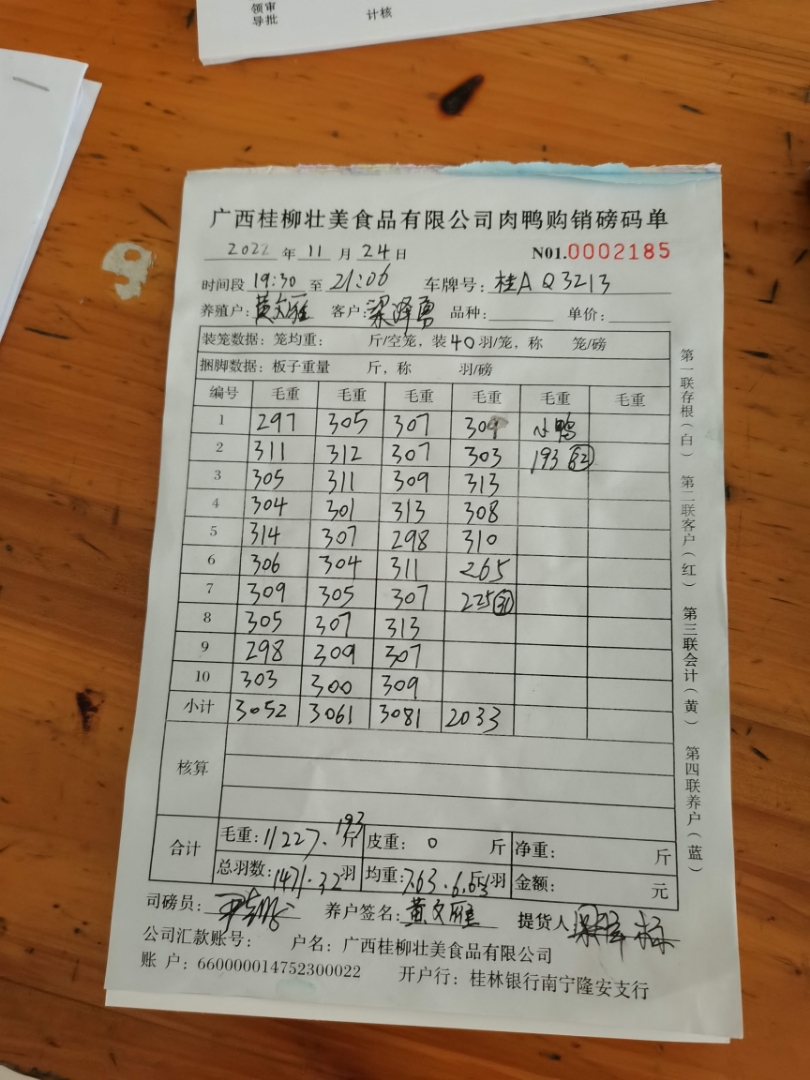 领审
导批
计核
广西桂柳壮美食品有限公司肉鸭购销磅码单
2022 年 11 月 24 日 N01.0002185
时间段 19:30 至 21:06 车牌号: 桂A Q3213
养殖户: 黄文雁 客户: 梁泽勇 品种: 单价:
装笼数据: 笼均重: 斤/空笼, 装40羽/笼, 称 笼/磅
捆脚数据: 板子重量 斤, 称 羽/磅
编号 毛重 毛重 毛重 毛重 毛重 毛重
1 297 305 307 309 小鸭
2 311 312 307 303 193 32
3 305 311 309 313
4 304 301 313 308
5 314 307 298 310
6 306 304 311 265
7 309 305 307 225 31
8 305 307 313
9 298 309 307
10 303 300 309
小计 3052 3061 3081 2033
核算
合计 毛重: 11227.193斤 皮重: 0 斤 净重: 斤
总羽数: 1471.32羽 均重: 7.63.6.03斤/羽 金额: 元
司磅员: 养户签名: 黄文雁 提货人
公司汇款账号: 户名: 广西桂柳壮美食品有限公司
账 户: 660000014752300022 开户行: 桂林银行南宁隆安支行
第一联存根(白) 第二联客户(红) 第三联会计(黄) 第四联养户(蓝)